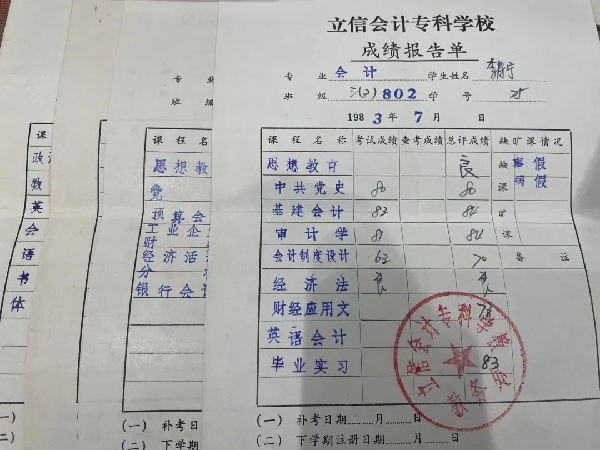 立信会计专科学校
成绩报告单
专 业 会 计 学生姓名
班 级 三(2)802 学 号
1983年7月 日
课程名称 考试成绩 查考成绩 总评成绩 缺旷课情况
思想教育 良 缺课 事假
病假
中共党史 80 80
基建会计 82 84 旷课
审计学 81 84
会计制度设计 62 70 备注
经济法 良 良
财经应用文
英语会计
毕业实习 83
立信会计专科学校教务处
(一) 补考日期 月 日
(二) 下学期注册日期 月 日
专 业
班 级
课 程 名
思想教
党
预算会
工业企
财
经济活
分
银行会计
(一) 补考日
(二) 下学期
课
政
数
英
会
语
书
体
(一)
(二)